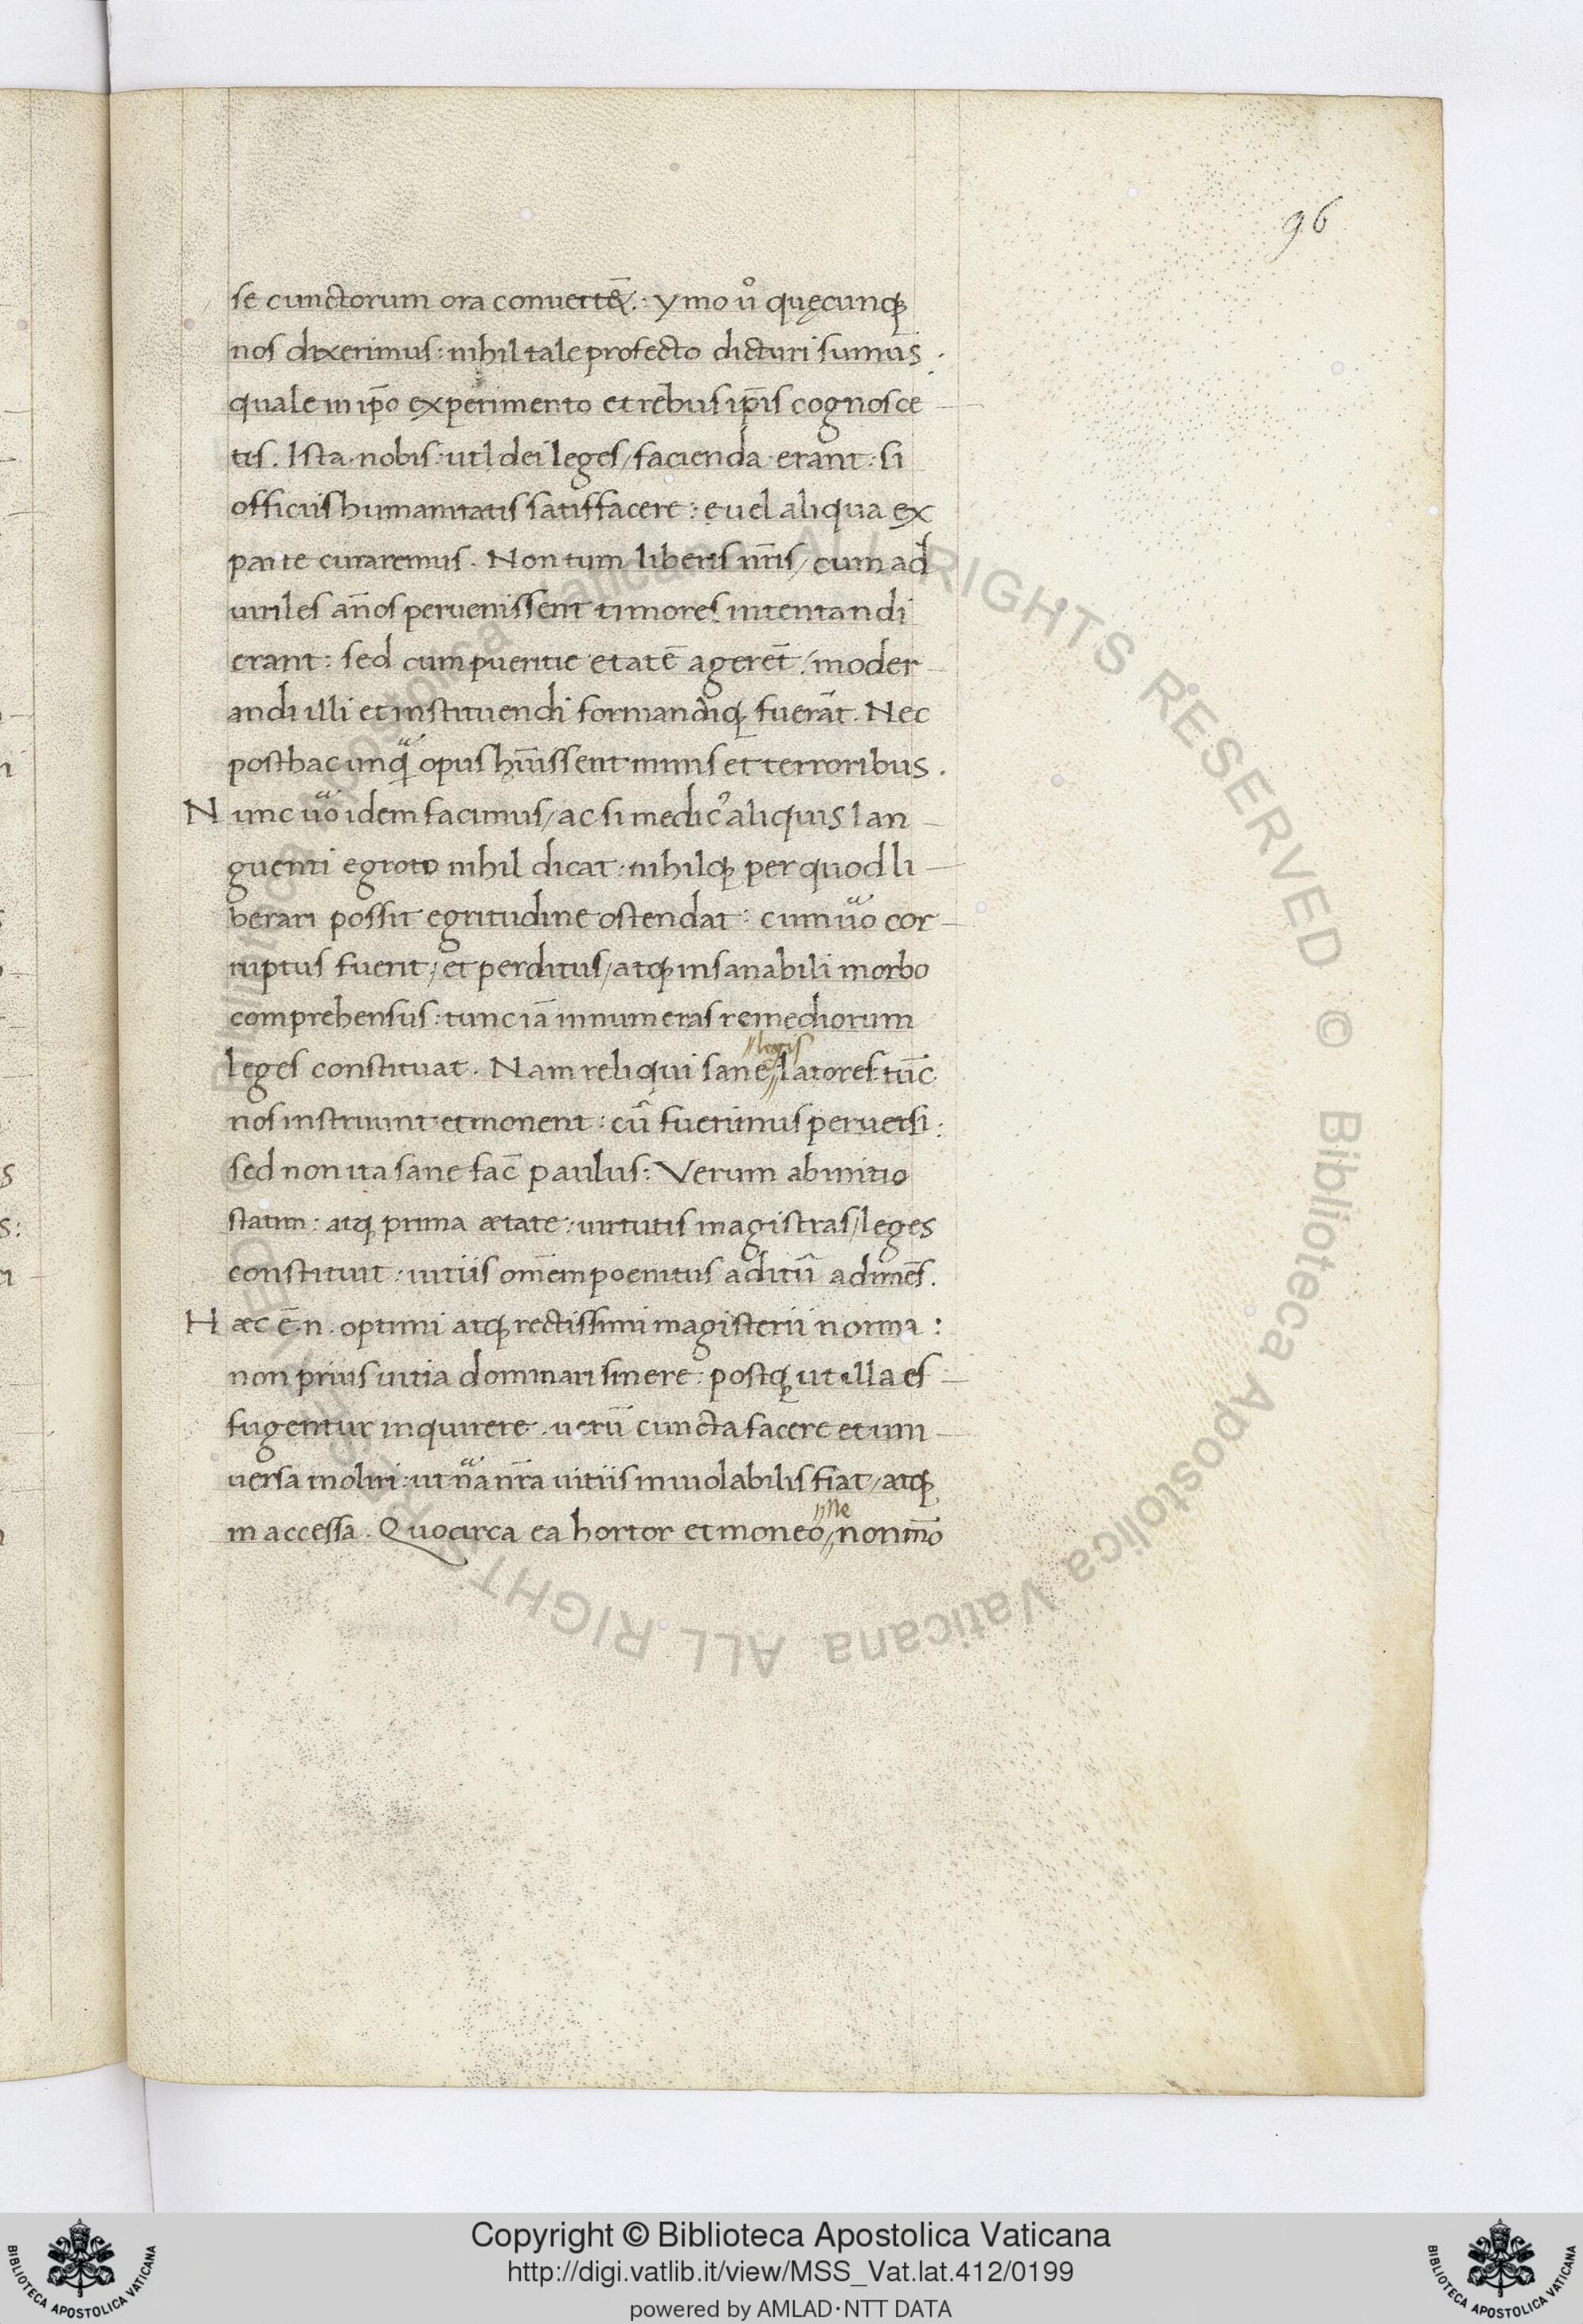 96
se cunctorum ora conuertẽt. Ymo ů quęcunq;
nos dixerimus: nihil tale profecto dicturi sumus.
quale in ip̃o experimento et rebus ip̃is cognosce
tis. Ista nobis: utl dei leges/ facienda erant: si
officiis humanitatis satisfacere: euel aliqua ex
parte curaremus. Non tum liberis nr̃is/ cum ad
uiriles an̄os peruenissent timores intentandi
erant: sed cum pueritie etatē agerēt/ moder
andi illi et instituendi formandiq; fuerāt. Nec
posthac unq̃ opus hūissent minis et terroribus.
Nunc uo̊ idem facimus/ ac si medic9 aliquis lan
guenti egroto nihil dicat: nihilq; per quod li
berari possit egritudine ostendat: cum uo̊ cor
ruptus fuerit, et perditus/ atq; insanabili morbo
comprehensus: tunc iā innumeras remediorum
leges constituat. Nam reliqui sane //legis latores tūc
nos instruunt et monent: cū fuerimus peruersi:
sed non ita sane fac̄ paulus: Verum ab initio
statim: atq; prima ætate: uirtutis magistras/ leges
constituit: uitiis om̄em poenitus aditū adimēs.
Hæc ē.n. optimi atq; rectissimi magisterii norma:
non prius uitia dominari sinere: postq; ut illa es
fugentur inquirere. uerū cuncta facere et uni
uersa moliri: ut nãnr̃a uitiis inuiolabilis fiat/ atq;
in accessa. Quocirca ea hortor et moneo //Ne non mō
Copyright © Biblioteca Apostolica Vaticana
http://digi.vatlib.it/view/MSS_Vat.lat.412/0199
powered by AMLAD·NTT DATA
BIBLIOTECA APOSTOLICA VATICANA
BIBLIOTECA APOSTOLICA VATICANA
© Biblioteca Apostolica Vaticana ALL RIGHTS RESERVED © Biblioteca Apostolica Vaticana ALL RIGHTS RESERVED